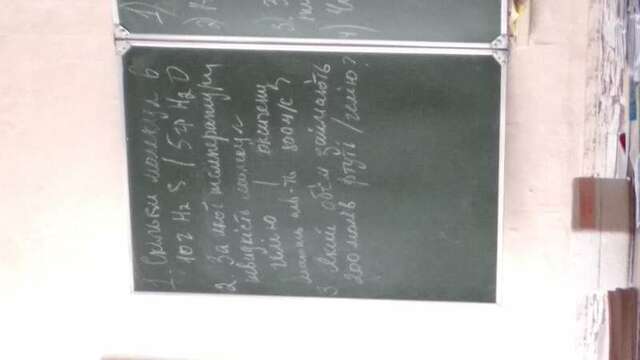 1. Скільки молекул в
10 г H₂S / 5 гр H₂O
2. За якої температури
швидкість молекул
гелію / оксигену
мають шв-ть 800 м/с?
3. Який об'єм займають
200 молів ртуті / гелію?
1)
2)
3)
4)